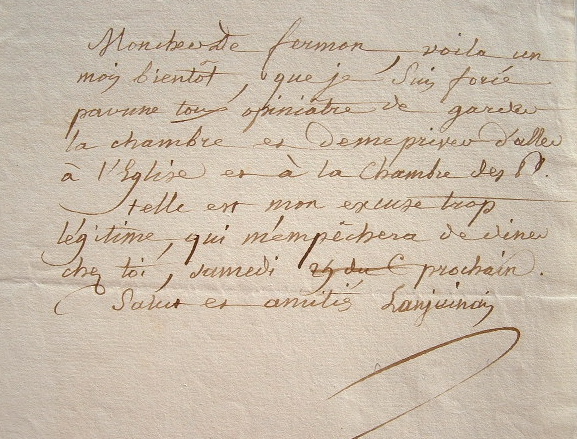 Mon cher De fermon, voila un
mois bientôt, que je suis forcé
par une toux opiniâtre de garder
la chambre et de me priver d'aller
à l'Eglise et à la Chambre des P.
telle est mon excuse trop
légitime, qui m'empêchera de diner
chez toi, samedi 29 du C prochain.
Salut et amitiés Lanjuinais